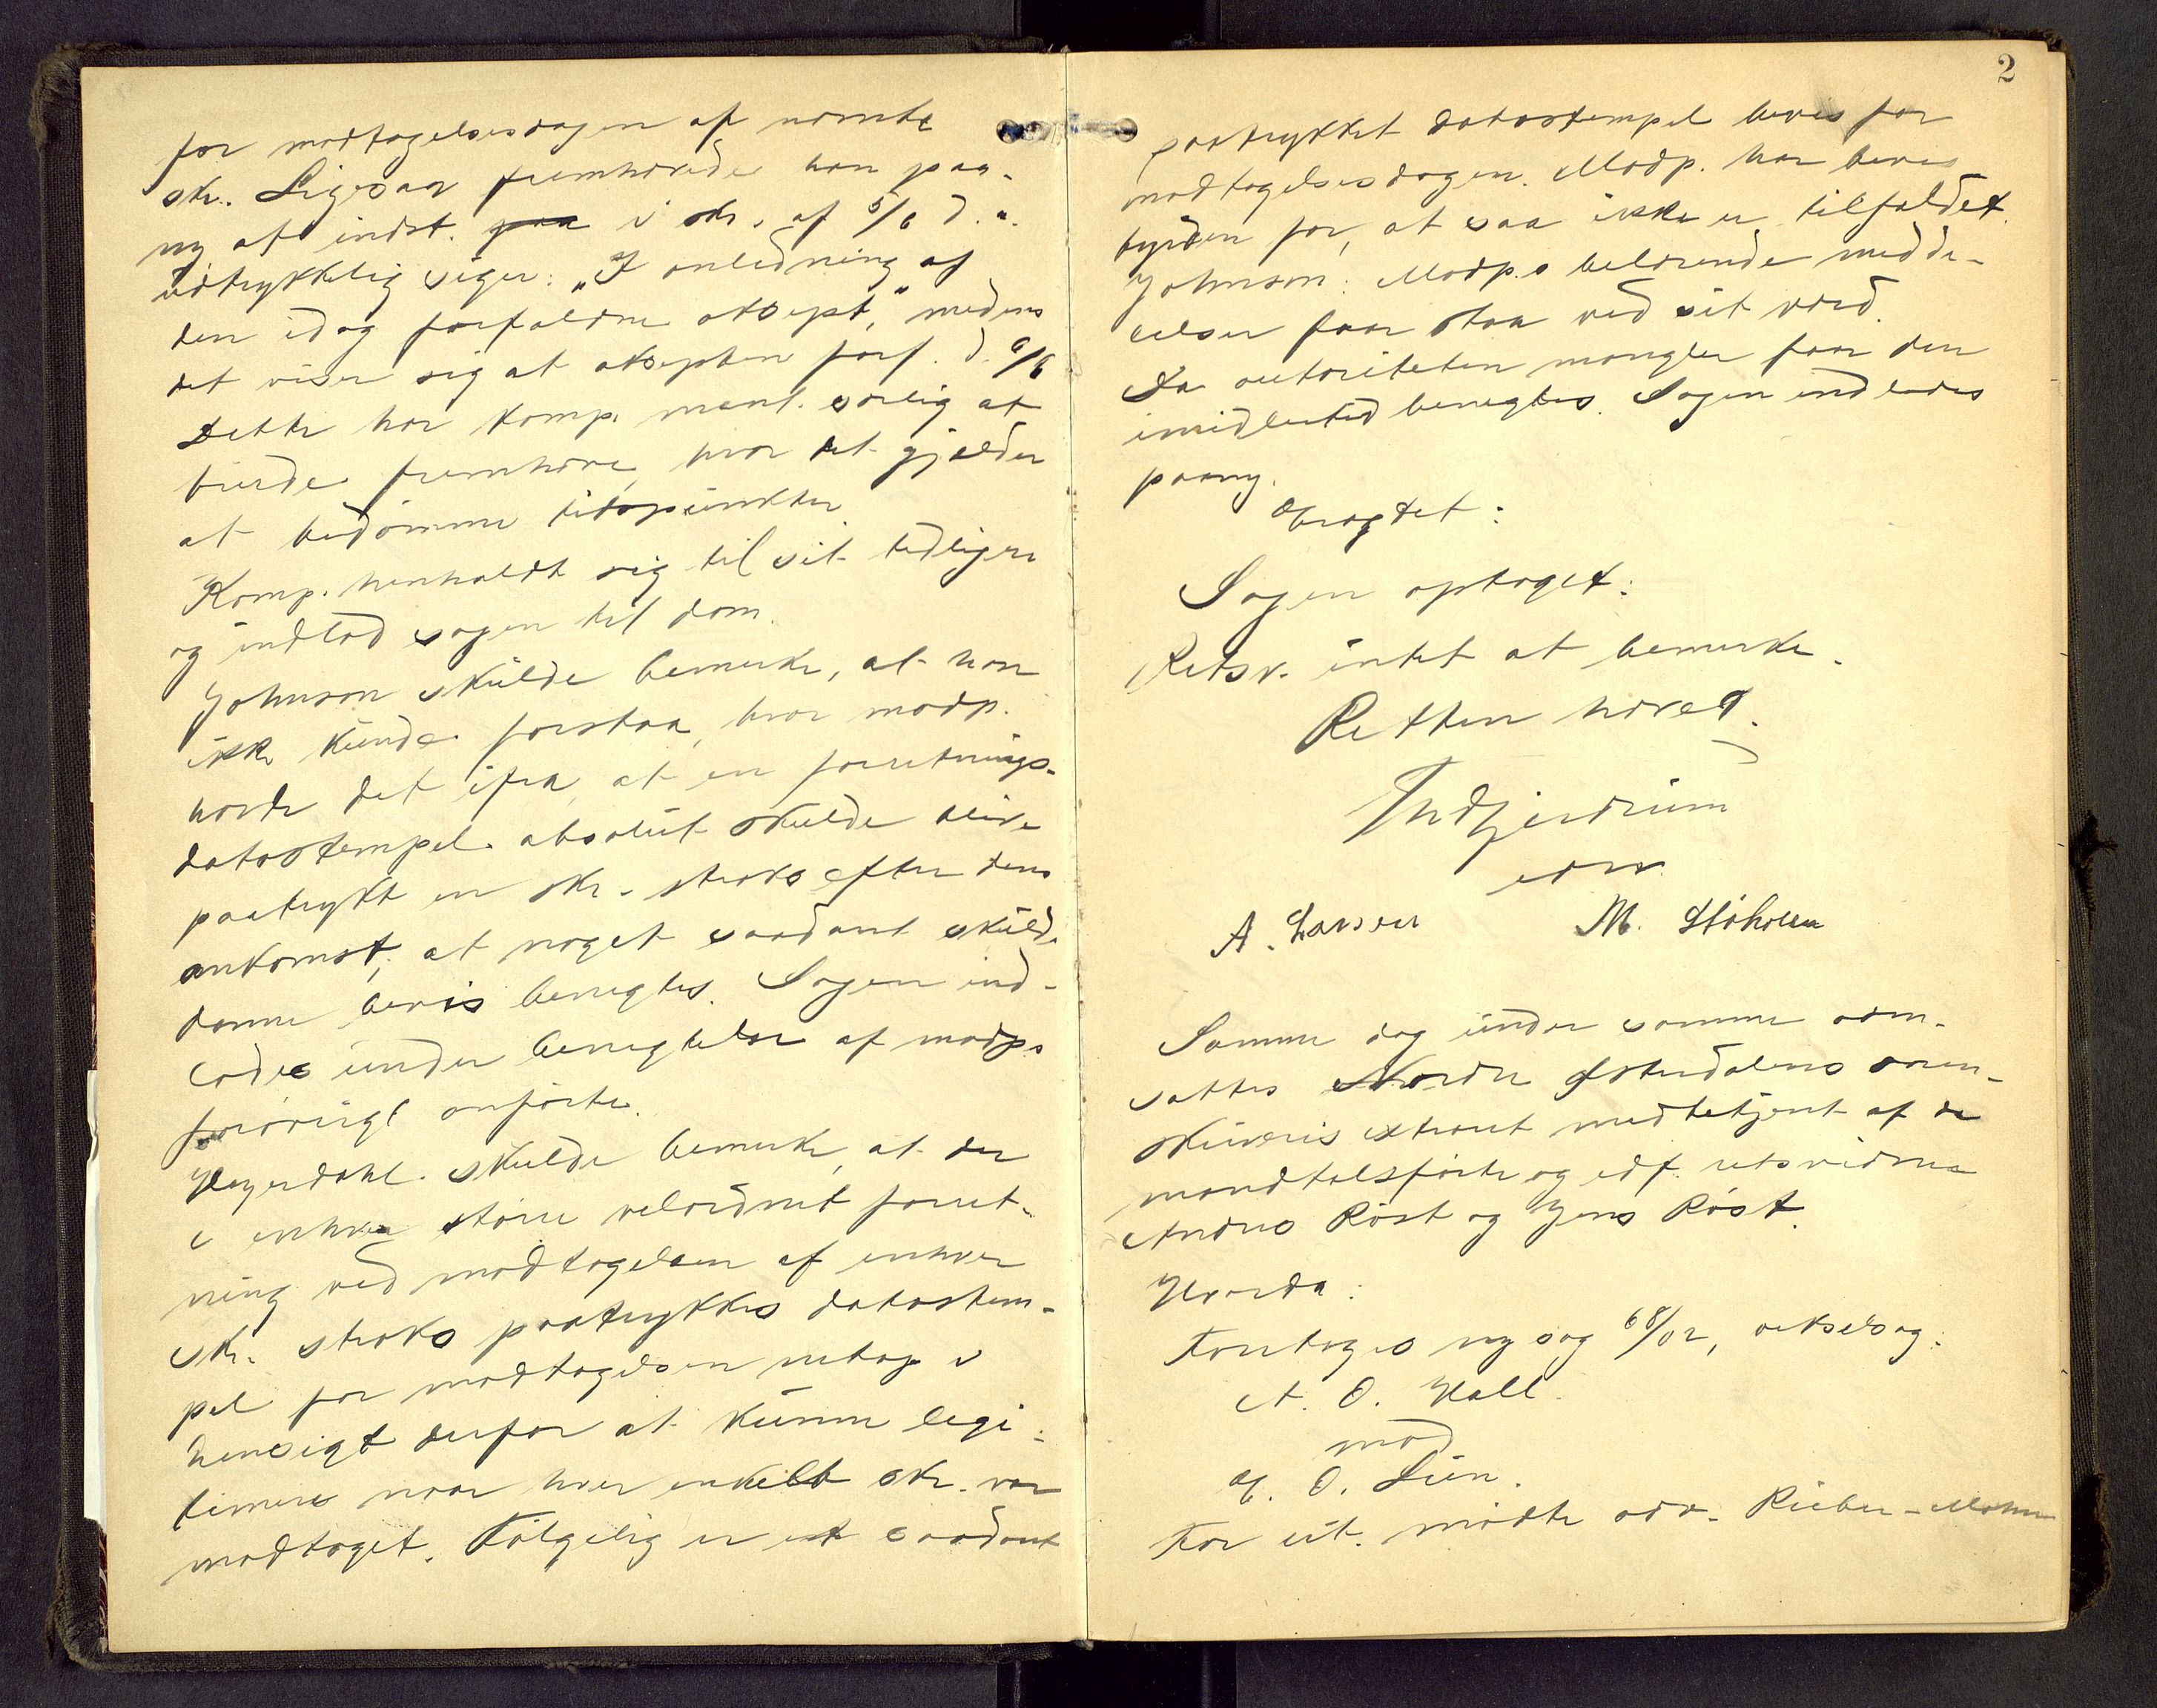 for modtagelsesdagen af nævnte
skr. Ligesaa fremhævedes han paa-
ny at indst. paa i skr. af 5/6 d. a.
udtrykkelig siger: "I anledning af
den idag forfaldne aksept," medens
det viser sig at aksepten forf. d. 6/6
Dette har komp. ment særlig at
burde fremhæve, hvor det gjælder
at bedømme tidspunkter
Komp. henholdt sig til sit tidligere
og indlod sagen til dom.
Johnson skulde bemerke, at han
ikke kunde forstaa, hvor modp.
havde det ifra, at en forretnings-
datostempel absolut skulde blive
paatrykt en skr. straks efter dens
ankomst; at noget saadant skulde
danne bevis benegtes. Sagen ind-
lodes under benegtelse af modp.s
forøvrigt anførte.
Heyerdahl skulde bemerke, at der
i enhver større velordnet forret-
ning ved modtagelsen af enhver
skr. straks paatrykkes datostem-
pel for modtagelsen netop i
hensigt derfor at kunne legi-
timere naar hver enkelt skr. var
modtaget. Følgelig er et saadant
2
paatrykket datostempel bevis for
modtagelsesdagen. Modp. har bevis
byrden for, at saa ikke er tilfældet.
Johnson: Modp.s belærende medde-
lelser faar staa ved sit værd.
Da autoriteten mangler faar den
imidlertid benegtes. Sagen indlodes
paany.
Eragtet:
Sagen optaget:
Retsv. intet at bemerke.
Retten hævet.
Indgjerdrum
edsv.
A. Larsen M. Stöholen
Samme dag under samme adm.
sattes Nordre Østerdalens soren-
skriveris extraret medbetjent af de
mandtalsførte og edf. retsvidner
Andreas Röst og Jens Röst.
Hvorda:
Foretoges ny sag 68/02, vekselsag:
A. O. Hall
mod
O. Lien.
For cit. mødte adv. Rieber-Mohn